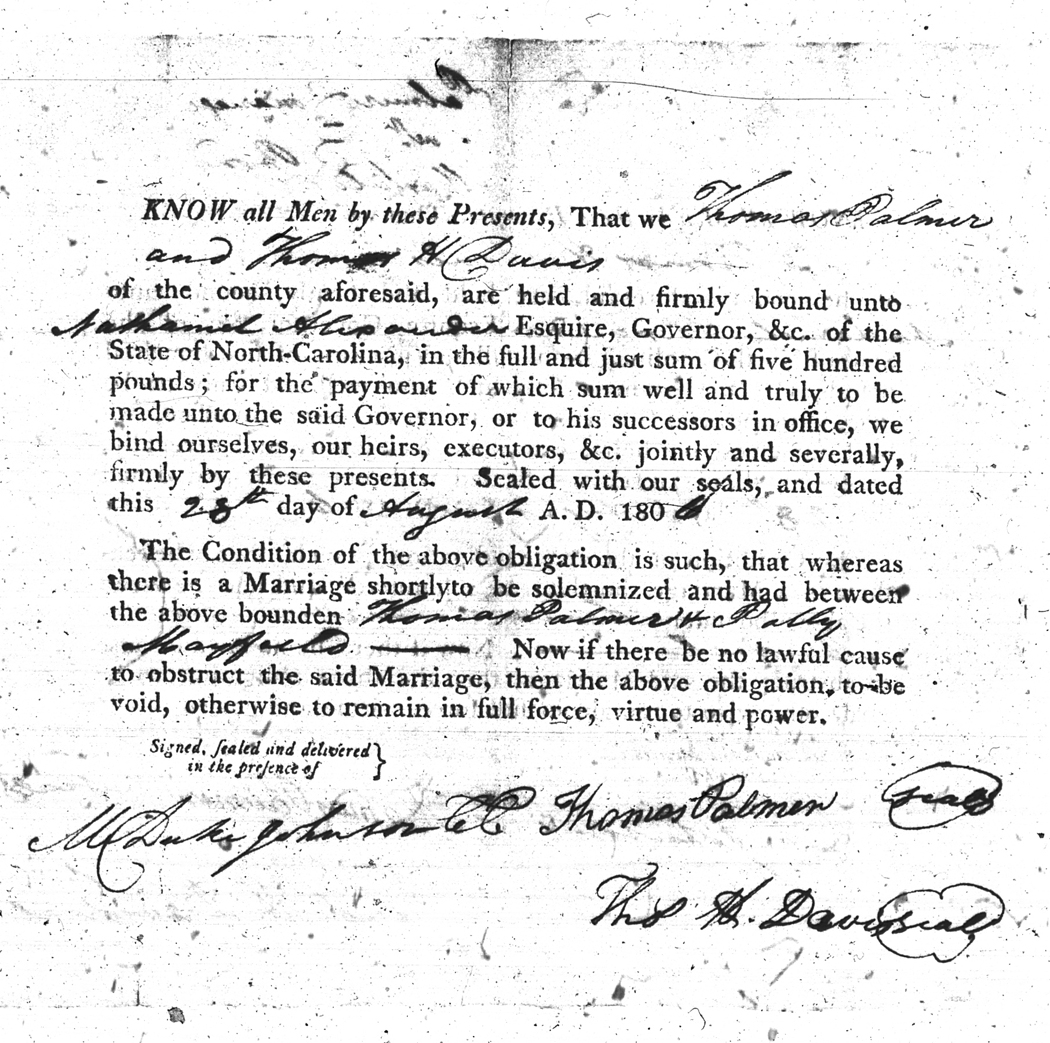 KNOW all Men by these Presents, That we Thomas Palmer
and Thomas H Davis
of the county aforesaid, are held and firmly bound unto
Nathaniel Alexander Esquire, Governor, &c. of the
State of North-Carolina, in the full and just sum of five hundred
pounds; for the payment of which sum well and truly to be
made unto the said Governor, or to his successors in office, we
bind ourselves, our heirs, executors, &c. jointly and severally,
firmly by these presents. Sealed with our seals, and dated
this 28th day of August A. D. 1806
The Condition of the above obligation is such, that whereas
there is a Marriage shortly to be solemnized and had between
the above bounden Thomas Palmer & Polly
Mayfield Now if there be no lawful cause
to obstruct the said Marriage, then the above obligation, to be
void, otherwise to remain in full force, virtue and power.
Signed, ſealed and delivered }
in the preſence of
M Duke Johnson CC Thomas Palmer seal
Thos H. Davis seal